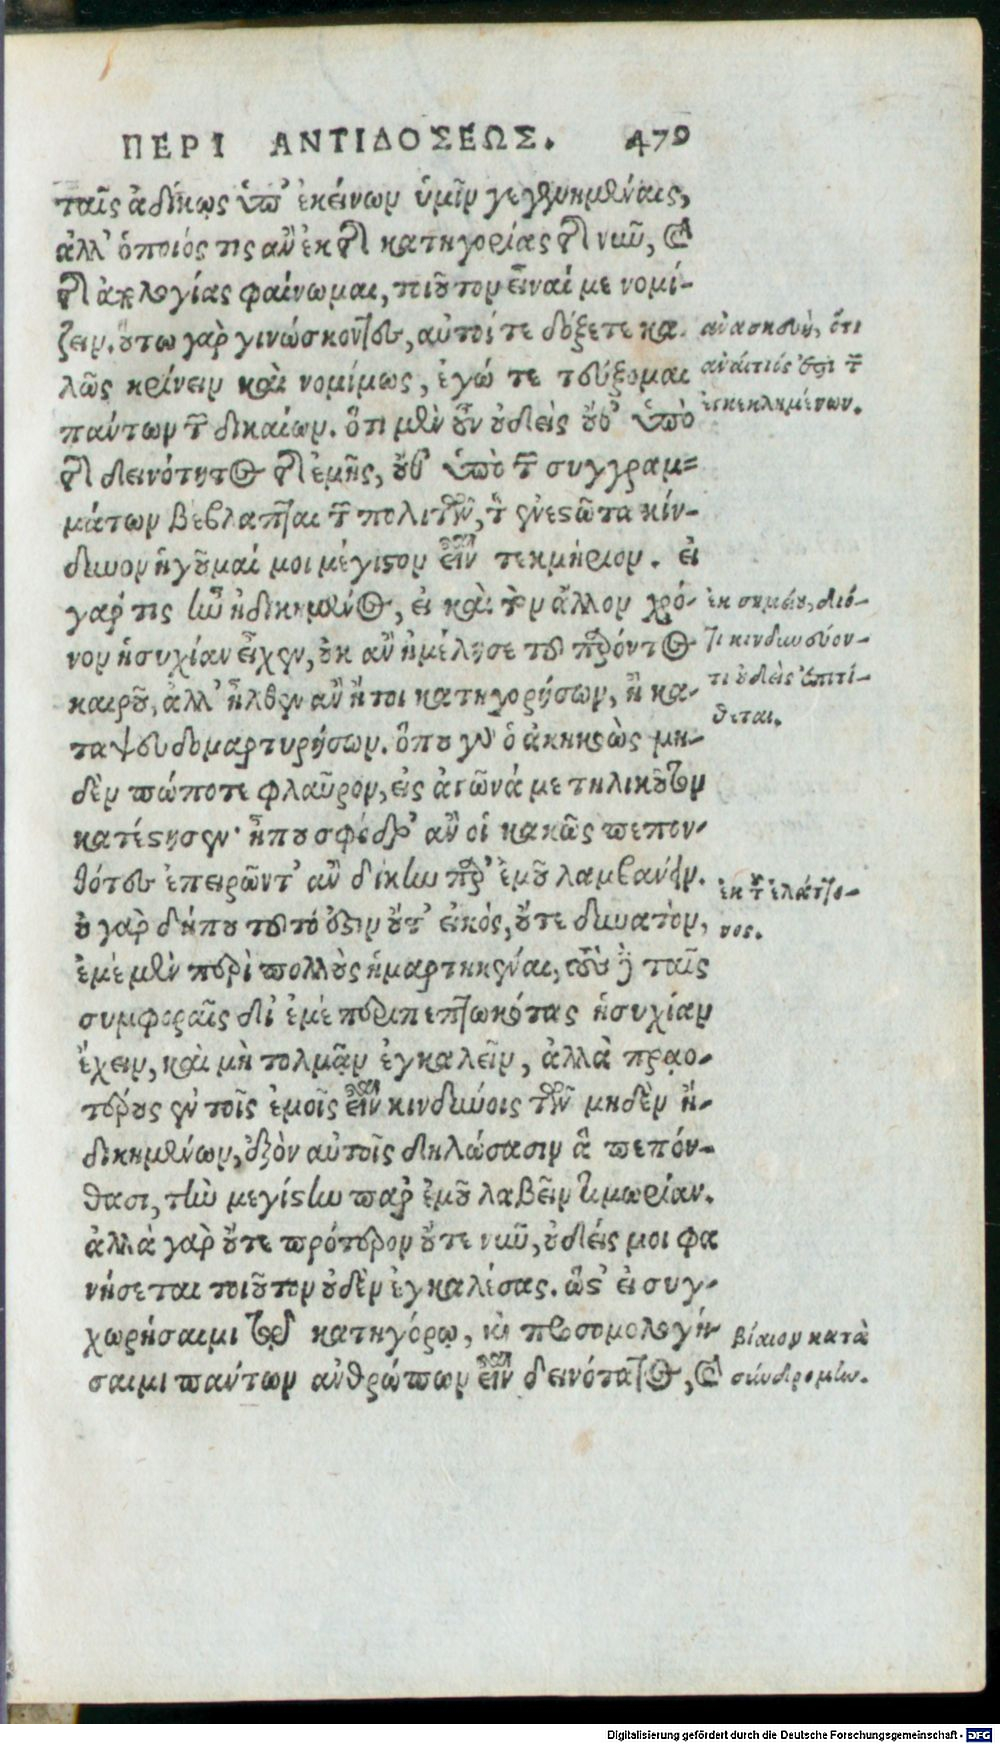 ΠΕΡΙ ΑΝΤΙΔΟΣΕΩΣ. 479
ταῖς ἀδίκως ὑπ' ἐκείνων ὑμῖν γεγενημέναις,
ἀλλ' ὁποῖός τις ἂν ἐκ τῆς κατηγορίας τῆς νῦν, καὶ
τῆς ἀπολογίας φαίνωμαι, τοιοῦτον εἶναί με νομί-
ζειν. οὕτω γὰρ γινώσκοντες, αὐτοί τε δόξετε κα-
λῶς κρίνειν καὶ νομίμως, ἐγώ τε τεύξομαι
πάντων τῶν δικαίων. ὅτι μὲν οὖν οὐδεὶς οὔθ' ὑπὸ
τῆς δεινότητος τῆς ἐμῆς, οὔθ' ὑπὸ τῶν συγγραμ-
μάτων βέβλαπται τῶν πολιτῶν, τὸν ἐνεστῶτα κίν-
δυνον ἡγοῦμαί μοι μέγιστον εἶναι τεκμήριον. εἰ
γάρ τις ἦν ἠδικημένος, εἰ καὶ τὸν ἄλλον χρό-
νον ἡσυχίαν εἶχεν, οὐκ ἂν ἠμέλησε τοῦ παρόντος
καιροῦ, ἀλλ' ἦλθεν ἂν ἤτοι κατηγορήσων, ἢ κα-
ταψευδομαρτυρήσων. ὅπου γὰρ ὁ ἀκηκοὼς μη-
δὲν πώποτε φλαῦρον, εἰς ἀγῶνά με τηλικοῦτον
κατέστησεν· ἦπου σφόδρ' ἂν οἱ κακῶς πεπον-
θότες ἐπειρῶντ' ἂν δίκην παρ' ἐμοῦ λαμβάνειν.
οὐ γὰρ δήπου τοῦτό ἐστιν οὔτ' εἰκός, οὔτε δυνατὸν,
ἐμὲ μὲν περὶ πολλοὺς ἡμαρτηκέναι, τοὺς δὲ ταῖς
συμφοραῖς δι' ἐμὲ περιπεπτωκότας ἡσυχίαν
ἔχειν, καὶ μὴ τολμᾷν ἐγκαλεῖν, ἀλλὰ πρᾳο-
τέρους ἐν τοῖς ἐμοῖς εἶναι κινδύνοις τῶν μηδὲν ἠ-
δικημένων, ἐξὸν αὐτοῖς δηλώσασιν ἃ πεπόν-
θασι, τὴν μεγίστην παρ' ἐμοῦ λαβεῖν τιμωρίαν.
ἀλλὰ γὰρ οὔτε πρότερον οὔτε νῦν, οὐδείς μοι φα
νήσεται τοιοῦτον οὐδὲν ἐγκαλέσας. ὥστ' εἰ συγ-
χωρήσαιμι τῷ κατηγόρῳ, καὶ προσομολογή-
σαιμι πάντων ἀνθρώπων εἶναι δεινότατος, καὶ
ἀνασκευὴ, ὅτι
ἀναίτιός ἐστι τῶν
ἐγκεκλημένων.
ἐκ σημείου, διό-
τι κινδυνεύον-
τι οὐδεὶς ἐπιτί-
θεται.
ἐκ τοῦ ἐλάττο-
νος.
βίαιον κατὰ
συνδρομήν.
Digitalisierung gefördert durch die Deutsche Forschungsgemeinschaft - DFG